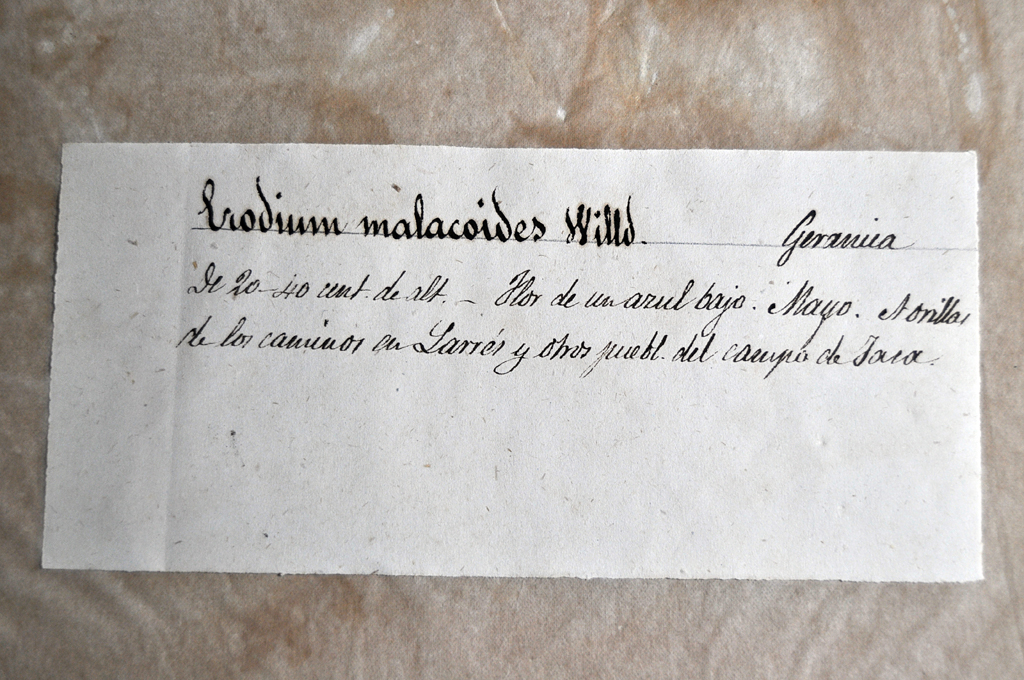 Erodium malacoides Willd. Geraniea
De 20-40 cent. de alt. - Flor de un azul bajo. Mayo. A orillas
de los caminos en Larrés y otros puebl. del campo de Jaca.